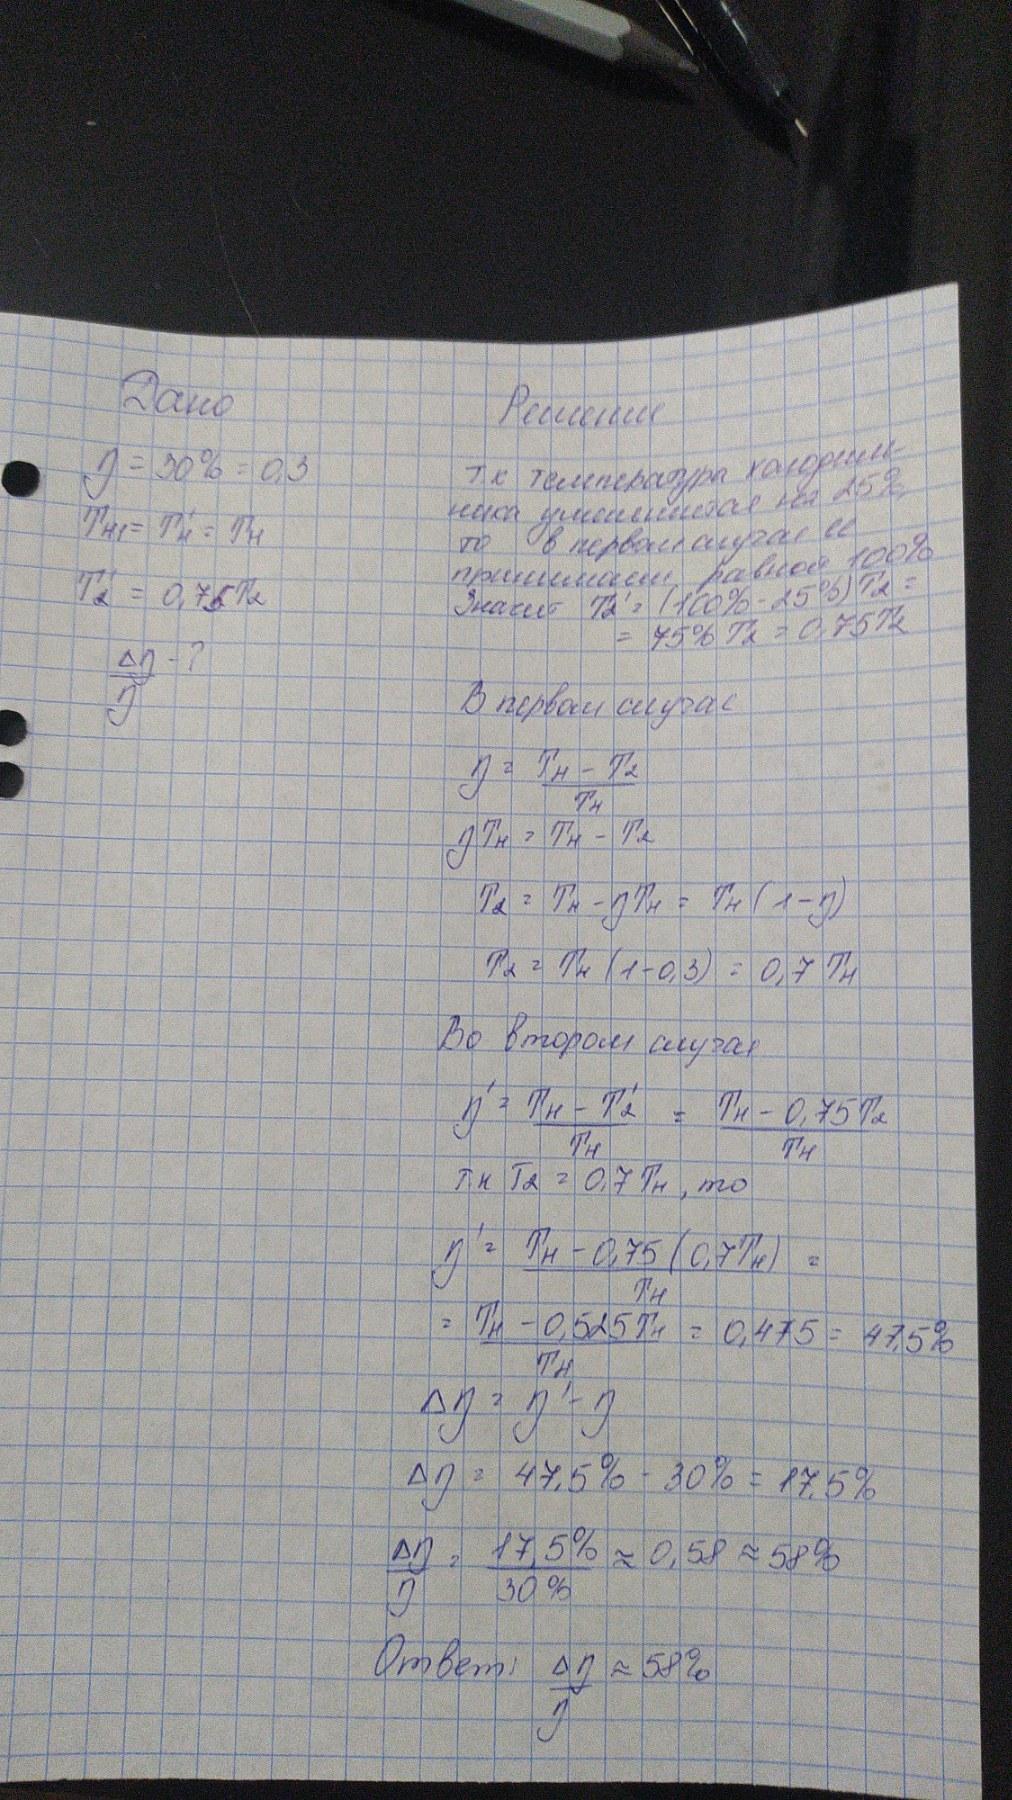 Дано
η = 30% = 0,3
Tн1 = Tн' = Tн
T2' = 0,75T2
Δη/η - ?
Решение
т.к температура холодиль-
ника уменьшится на 25%,
то в первом случае её
принимаем равной 100%
Значит T2' = (100% - 25%)T2 =
= 75% T2 = 0,75T2
В первом случае
η = (Tн - T2)/Tн
ηTн = Tн - T2
T2 = Tн - ηTн = Tн(1-η)
T2 = Tн(1-0,3) = 0,7Tн
Во втором случае
η' = (Tн - T2')/Tн = (Tн - 0,75T2)/Tн
т.к T2 = 0,7Tн, то
η' = (Tн - 0,75(0,7Tн))/Tн =
= (Tн - 0,525Tн)/Tн = 0,475 = 47,5%
Δη = η' - η
Δη = 47,5% - 30% = 17,5%
Δη/η = 17,5%/30% ≈ 0,58 ≈ 58%
Ответ: Δη/η ≈ 58%